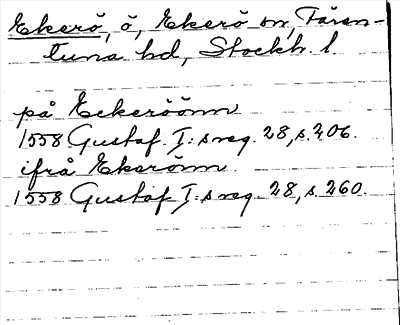 Ekerö, ö, Ekerö sn, Fären-
tuna hd, Stockh. l.
på Eckeröönn
1558 Gustaf I:s reg. 28, s. 206.
ifrå Ekerönn
1558 Gustaf I:s reg. 28, s. 260.